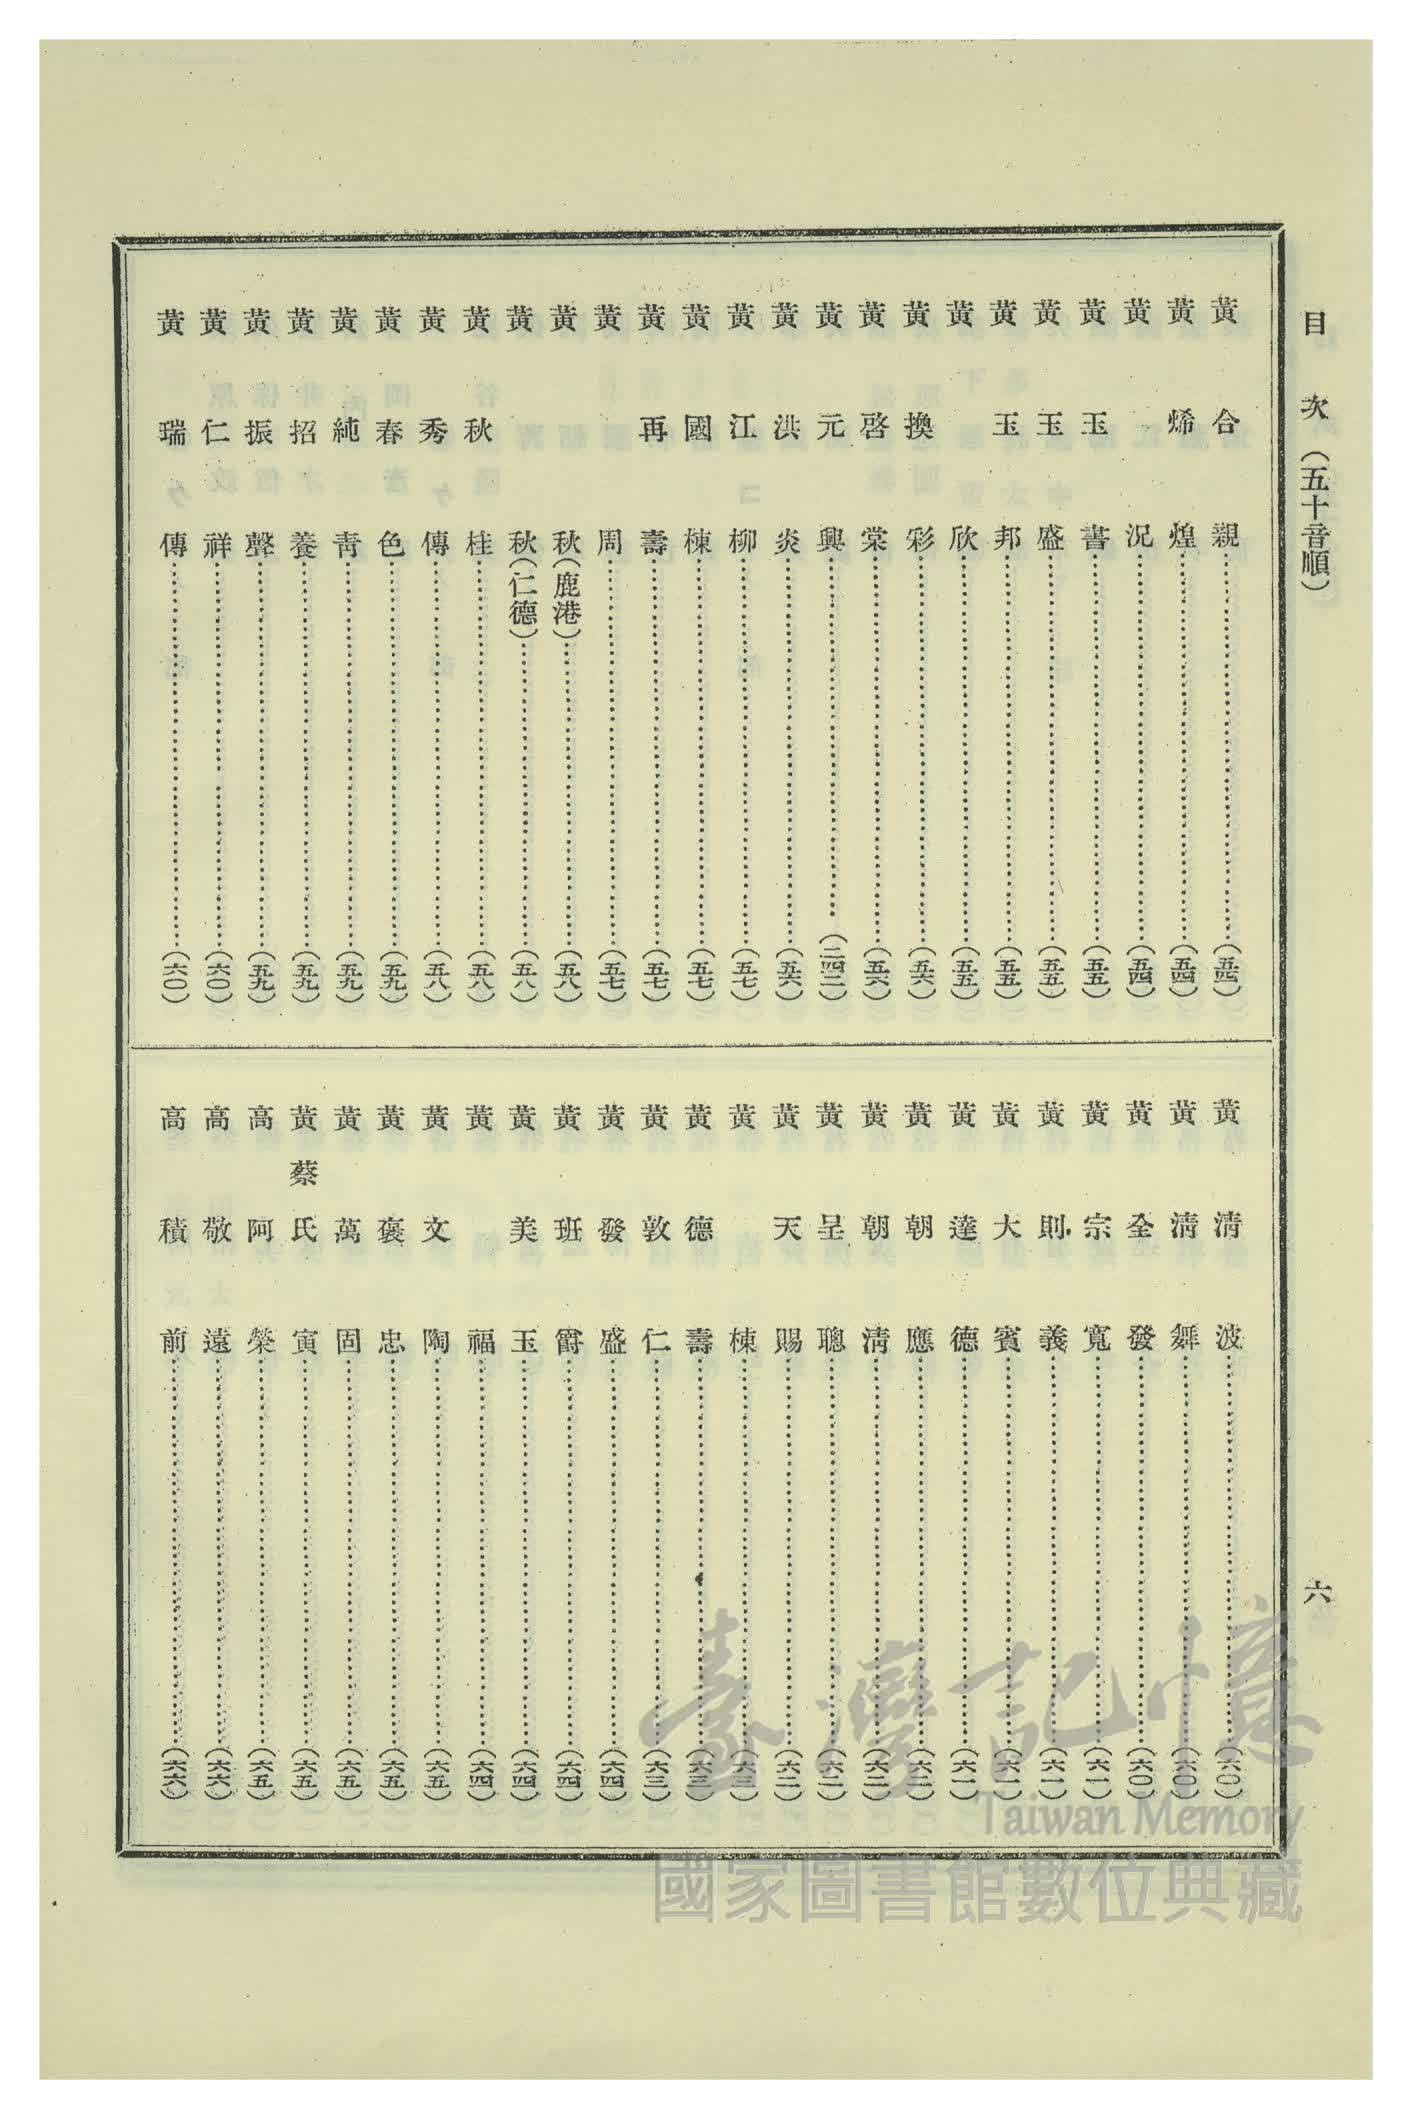 目次（五十音順）
六
黃合親（五四）
黃烯煌（五四）
黃況（五四）
黃玉書（五五）
黃玉盛（五五）
黃玉邦（五五）
黃欣（五五）
黃換彩（五六）
黃啓棠（五六）
黃元興（二四二）
黃洪炎（五六）
黃江柳（五七）
黃國棟（五七）
黃再壽（五七）
黃周（五七）
黃秋（鹿港）（五八）
黃秋（仁德）（五八）
黃秋桂（五八）
黃秀傳（五八）
黃春色（五九）
黃純青（五九）
黃招養（五九）
黃振聲（五九）
黃仁祥（六〇）
黃瑞傳（六〇）
黃清波（六〇）
黃清舞（六〇）
黃全發（六〇）
黃宗寬（六一）
黃則義（六一）
黃大賓（六一）
黃達德（六一）
黃朝應（六二）
黃朝清（六二）
黃呈聰（六二）
黃天賜（六二）
黃棟（六三）
黃德壽（六三）
黃敦仁（六三）
黃發盛（六四）
黃班爵（六四）
黃美玉（六四）
黃福（六四）
黃文陶（六五）
黃褒忠（六五）
黃萬固（六五）
黃蔡氏寅（六五）
高阿榮（六五）
高敬遠（六六）
高積前（六六）
臺灣記憶
Taiwan Memory
國家圖書館數位典藏